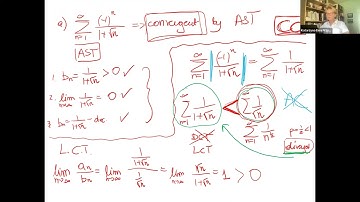 a) ∞ Σ n=1 (-1)^n / 1+√n => convergent by AST
CC
AST
1. bn = 1/1+√n > 0 ✓
2. lim n→∞ 1/1+√n = 0 ✓
3. bn = 1/1+√n - dec ✓
∞ Σ n=1 | (-1)^n / 1+√n | = ∞ Σ n=1 1/1+√n
∞ Σ n=1 1/1+√n < ∞ Σ n=1 1/√n
LCT
∞ Σ n=1 1/n^½ p=½<1
diverges
L.C.T.
lim n→∞ an/bn = lim n→∞ 1/1+√n / 1/√n = lim n→∞ √n/1+√n = 1 > 0